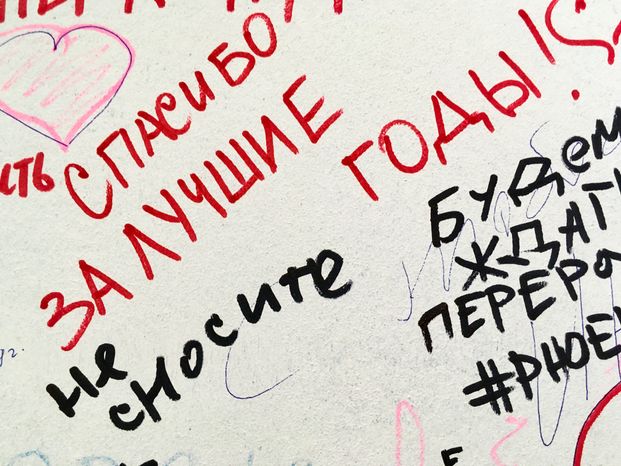 СПАСИБО
ЗА ЛУЧШИЕ ГОДЫ!
не сносите
БУДЕМ
ЖДАТ
ПЕРЕРО
#PHOE